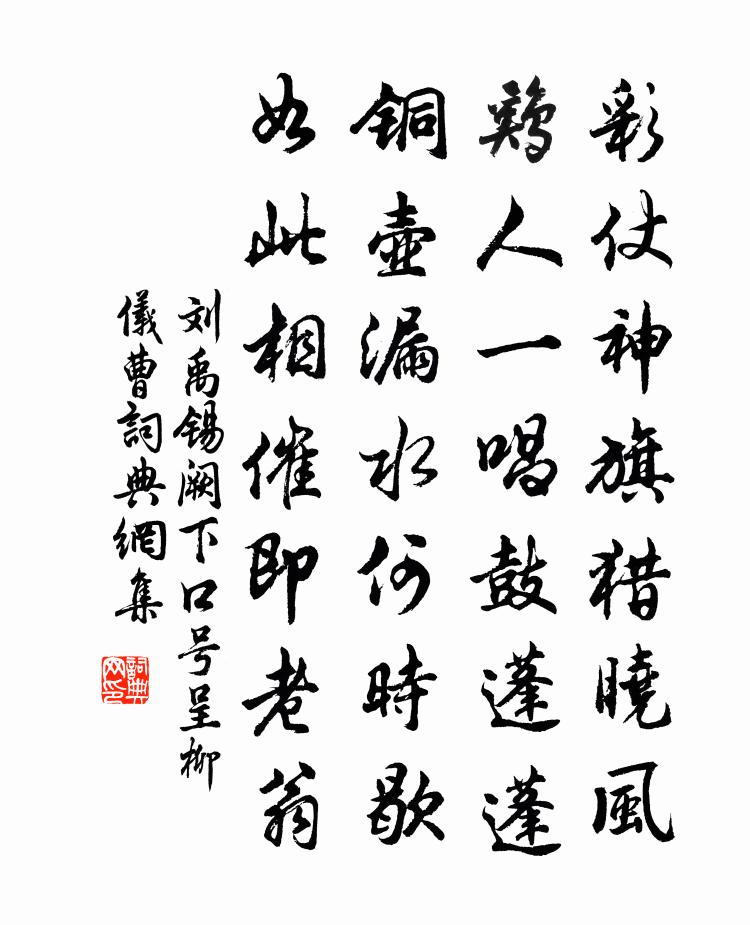 彩仗神旗猎曉風
鷄人一唱鼓蓬蓬
銅壺漏水何時歇
如此相催即老翁
刘禹锡阙下口号呈柳
儀曹詞典網集
詞典网印